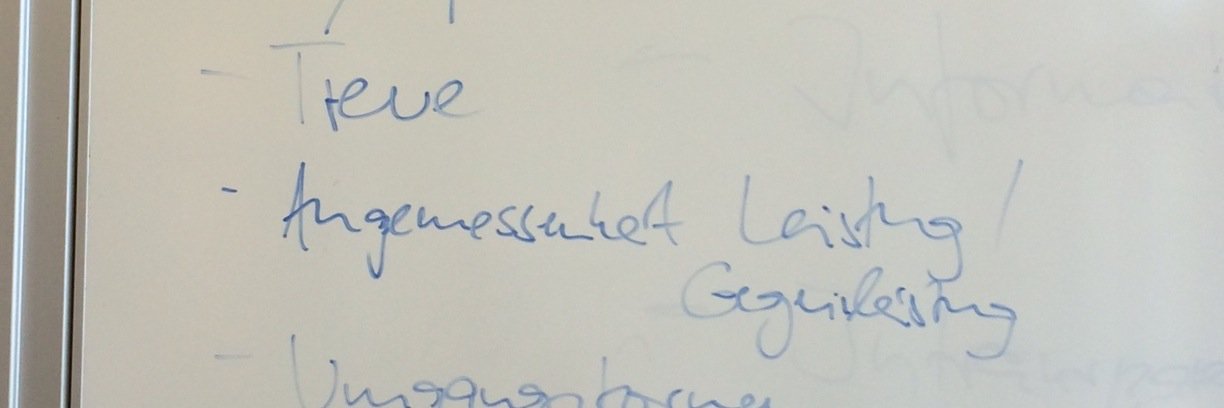 - Treue
- Angemessenheit Leistung /
Gegenleistung
- Umgangsformen